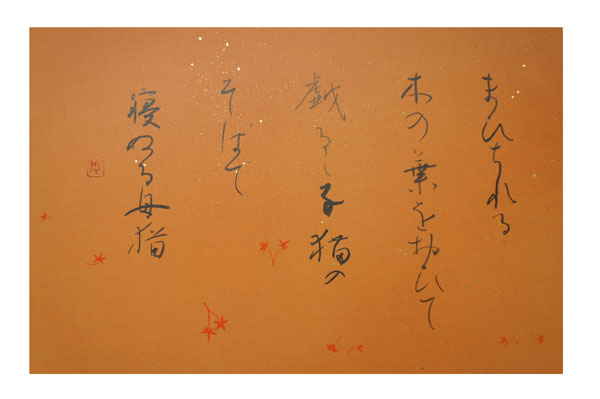 まひちれる
木の葉をおひて
戯るゝ子猫の
そばて
寝ぬる母猫